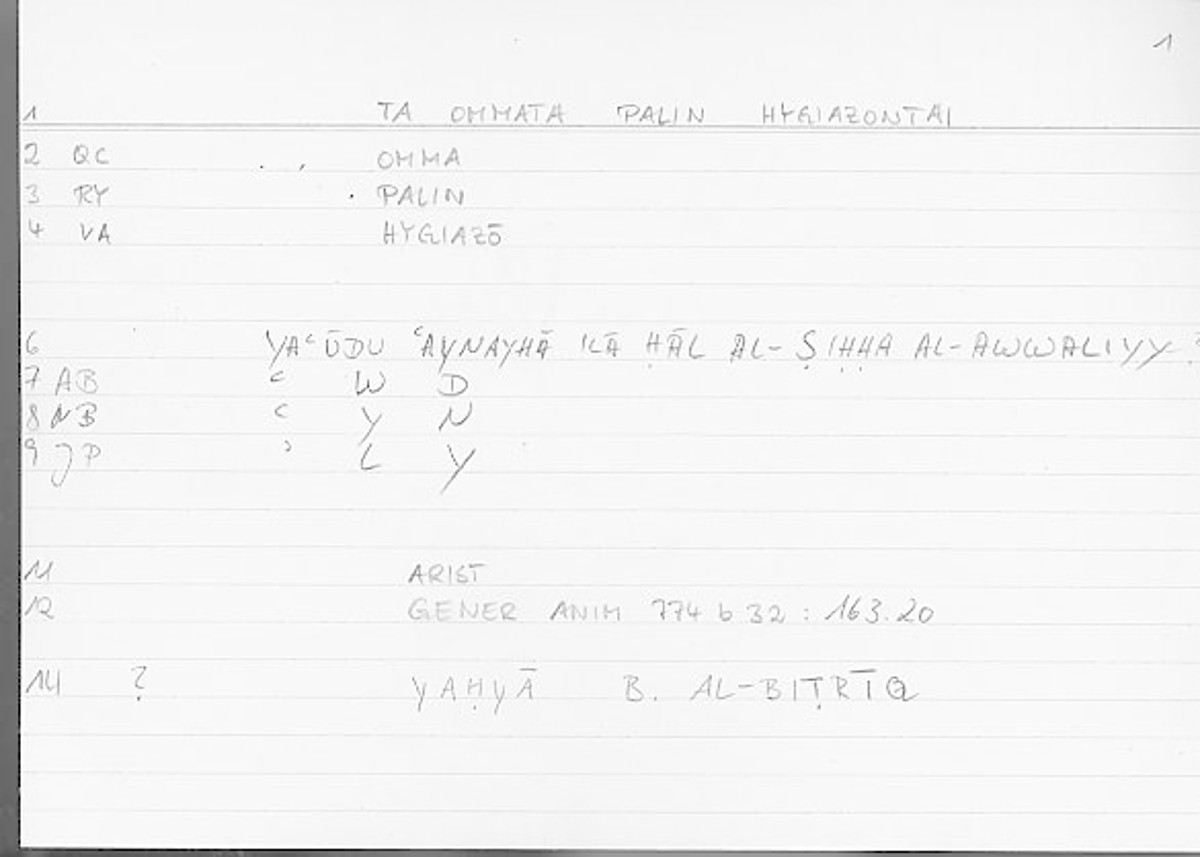 1
1 TA OMMATA PALIN HYGIAZONTAI
2 QC OMMA
3 RY PALIN
4 VA HYGIAZŌ
6 YAʿŪDU ʿAYNAYHĀ ILĀ ḤĀL AL-ṢIḤḤA AL-AWWALIYY
7 AB ʿ W D
8 NB ʿ Y N
9 JP ʾ L Y
11 ARIST
12 GENER ANIM 774 b 32 : 163.20
14 ? YAḤYĀ B. AL-BIṬRĪQ